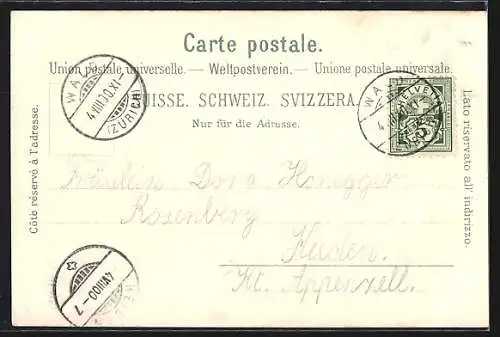 Carte postale.
Union postale universelle. — Weltpostverein. — Unione postale universale.
SUISSE. SCHWEIZ. SVIZZERA.
Nur für die Adresse.
Côté réservé à l'adresse.
Lato riservato all' indirizzo.
WALD
4.VIII.00.XI-
(ZÜRICH)
WALD
HELVETIA
5
Fräulein Dora Honegger
Rosenberg
Heiden.
Kt. Appenzell.
4.VIII.00-7
HEIDEN